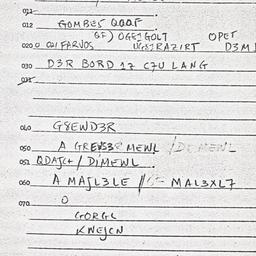 021
012 GOMBES QOOF
GF) OGESGOLT OPET
020 FARVOS UGSTRAZIRT D3M
030 D3R BORD 17 C7U LANG
035
060 GYEWD3R
050 A GREWS3R MEWL / DEMEWL
051 QDAJCH / DIMEWL.
060 A MAJL3LE // MAL3XL7
070 O
GORGL
KWEJCN